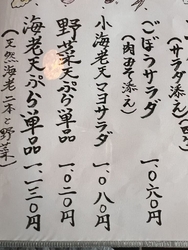 (サラダ添え)
ごぼうサラダ
(肉みそ添え)
一、〇六〇円
小海老天マヨサラダ
一、〇八〇円
野菜天ぷら単品
一、〇二〇円
海老天ぷら単品
一、一三〇円
(天然海老一本と野菜)